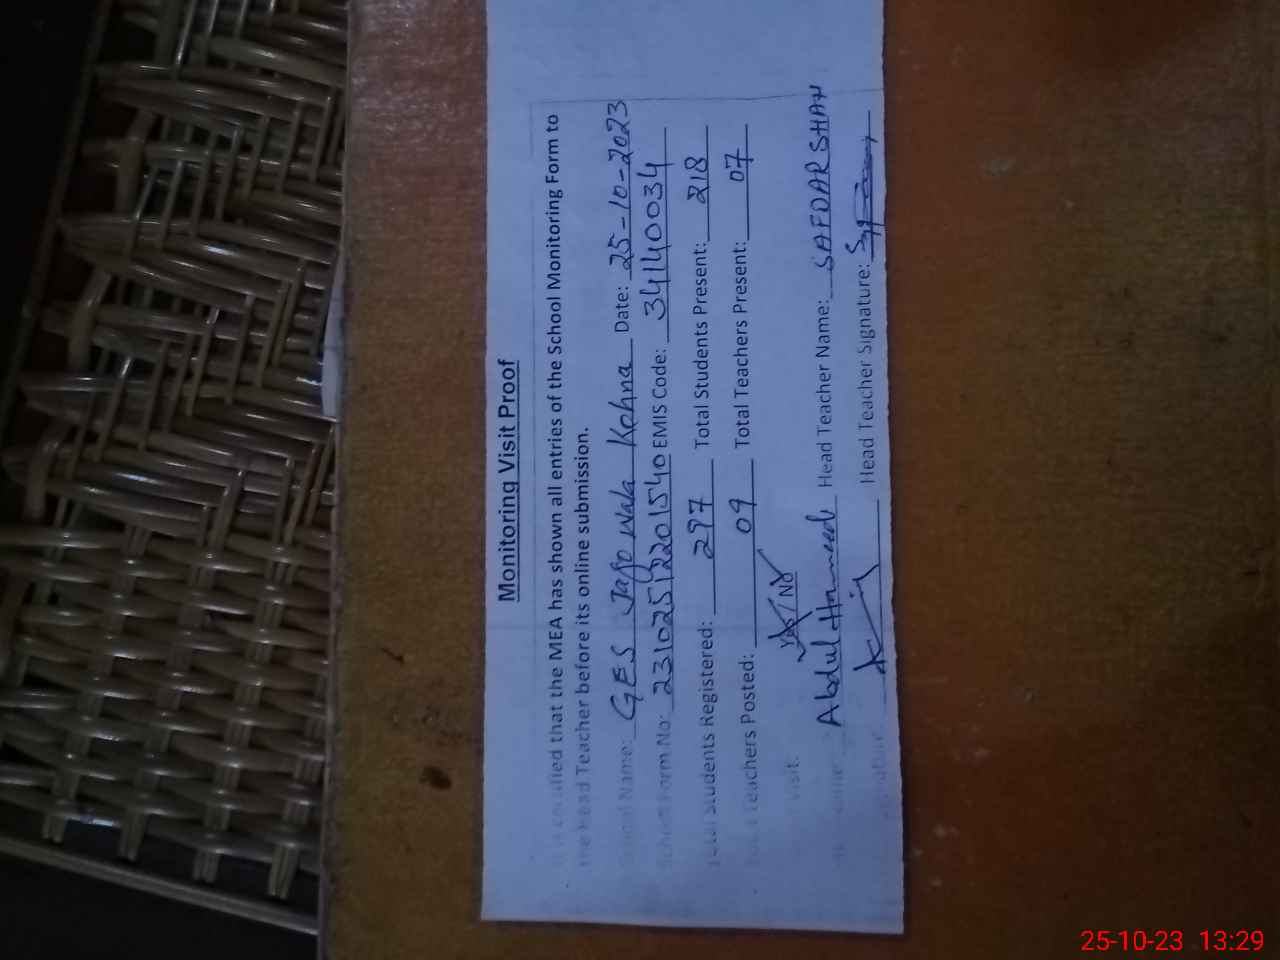 Monitoring Visit Proof
certified that the MEA has shown all entries of the School Monitoring Form to
the Head Teacher before its online submission.
School Name: GES Jago Wala Kohna Date: 25-10-2023
School Form No: 23102512201540 EMIS Code: 34140034
Total Students Registered: 297 Total Students Present: 218
Total Teachers Posted: 09 Total Teachers Present: 07
Visit: Yes / No
Abdul Hameed Head Teacher Name: SAFDAR SHAH
Signature: Head Teacher Signature:
25-10-23 13:29